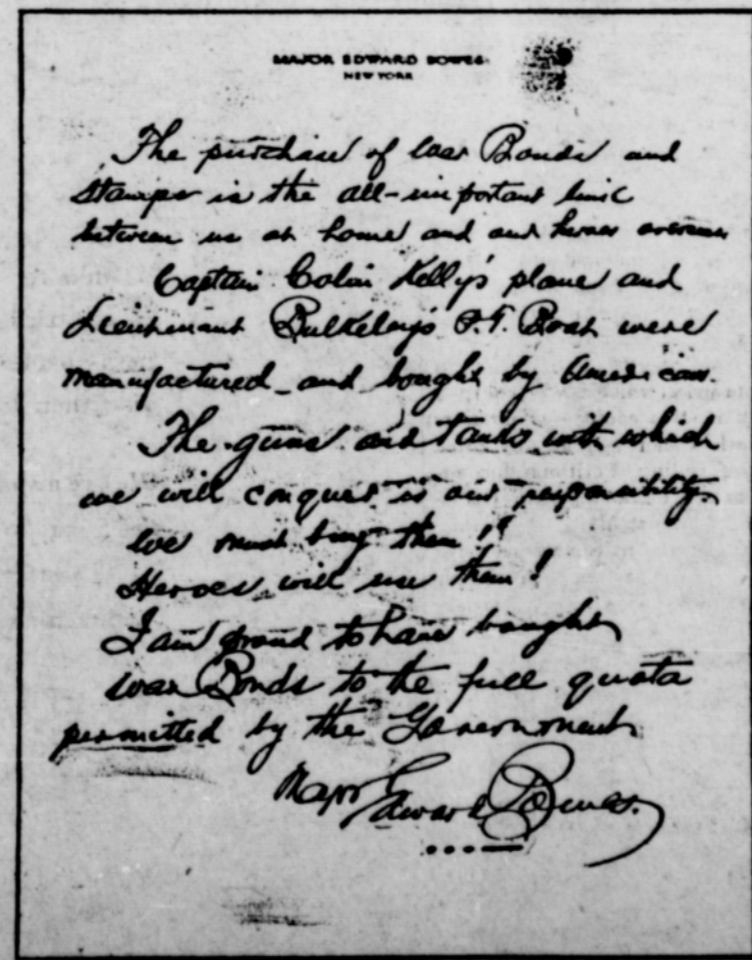 MAJOR EDWARD BOWES
NEW YORK
The purchase of War Bonds and
Stamps is the all-important link
between us at home and our heroes overseas
Captain Colin Kelly's plane and
Lieutenant Bulkeley's P.T. Boat were
manufactured and bought by Americans.
The guns and tanks with which
we will conquer is our responsibility.
We must buy them!
Heroes will use them!
I am proud to have bought
War Bonds to the full quota
permitted by the Government
Major Edward Bowes.